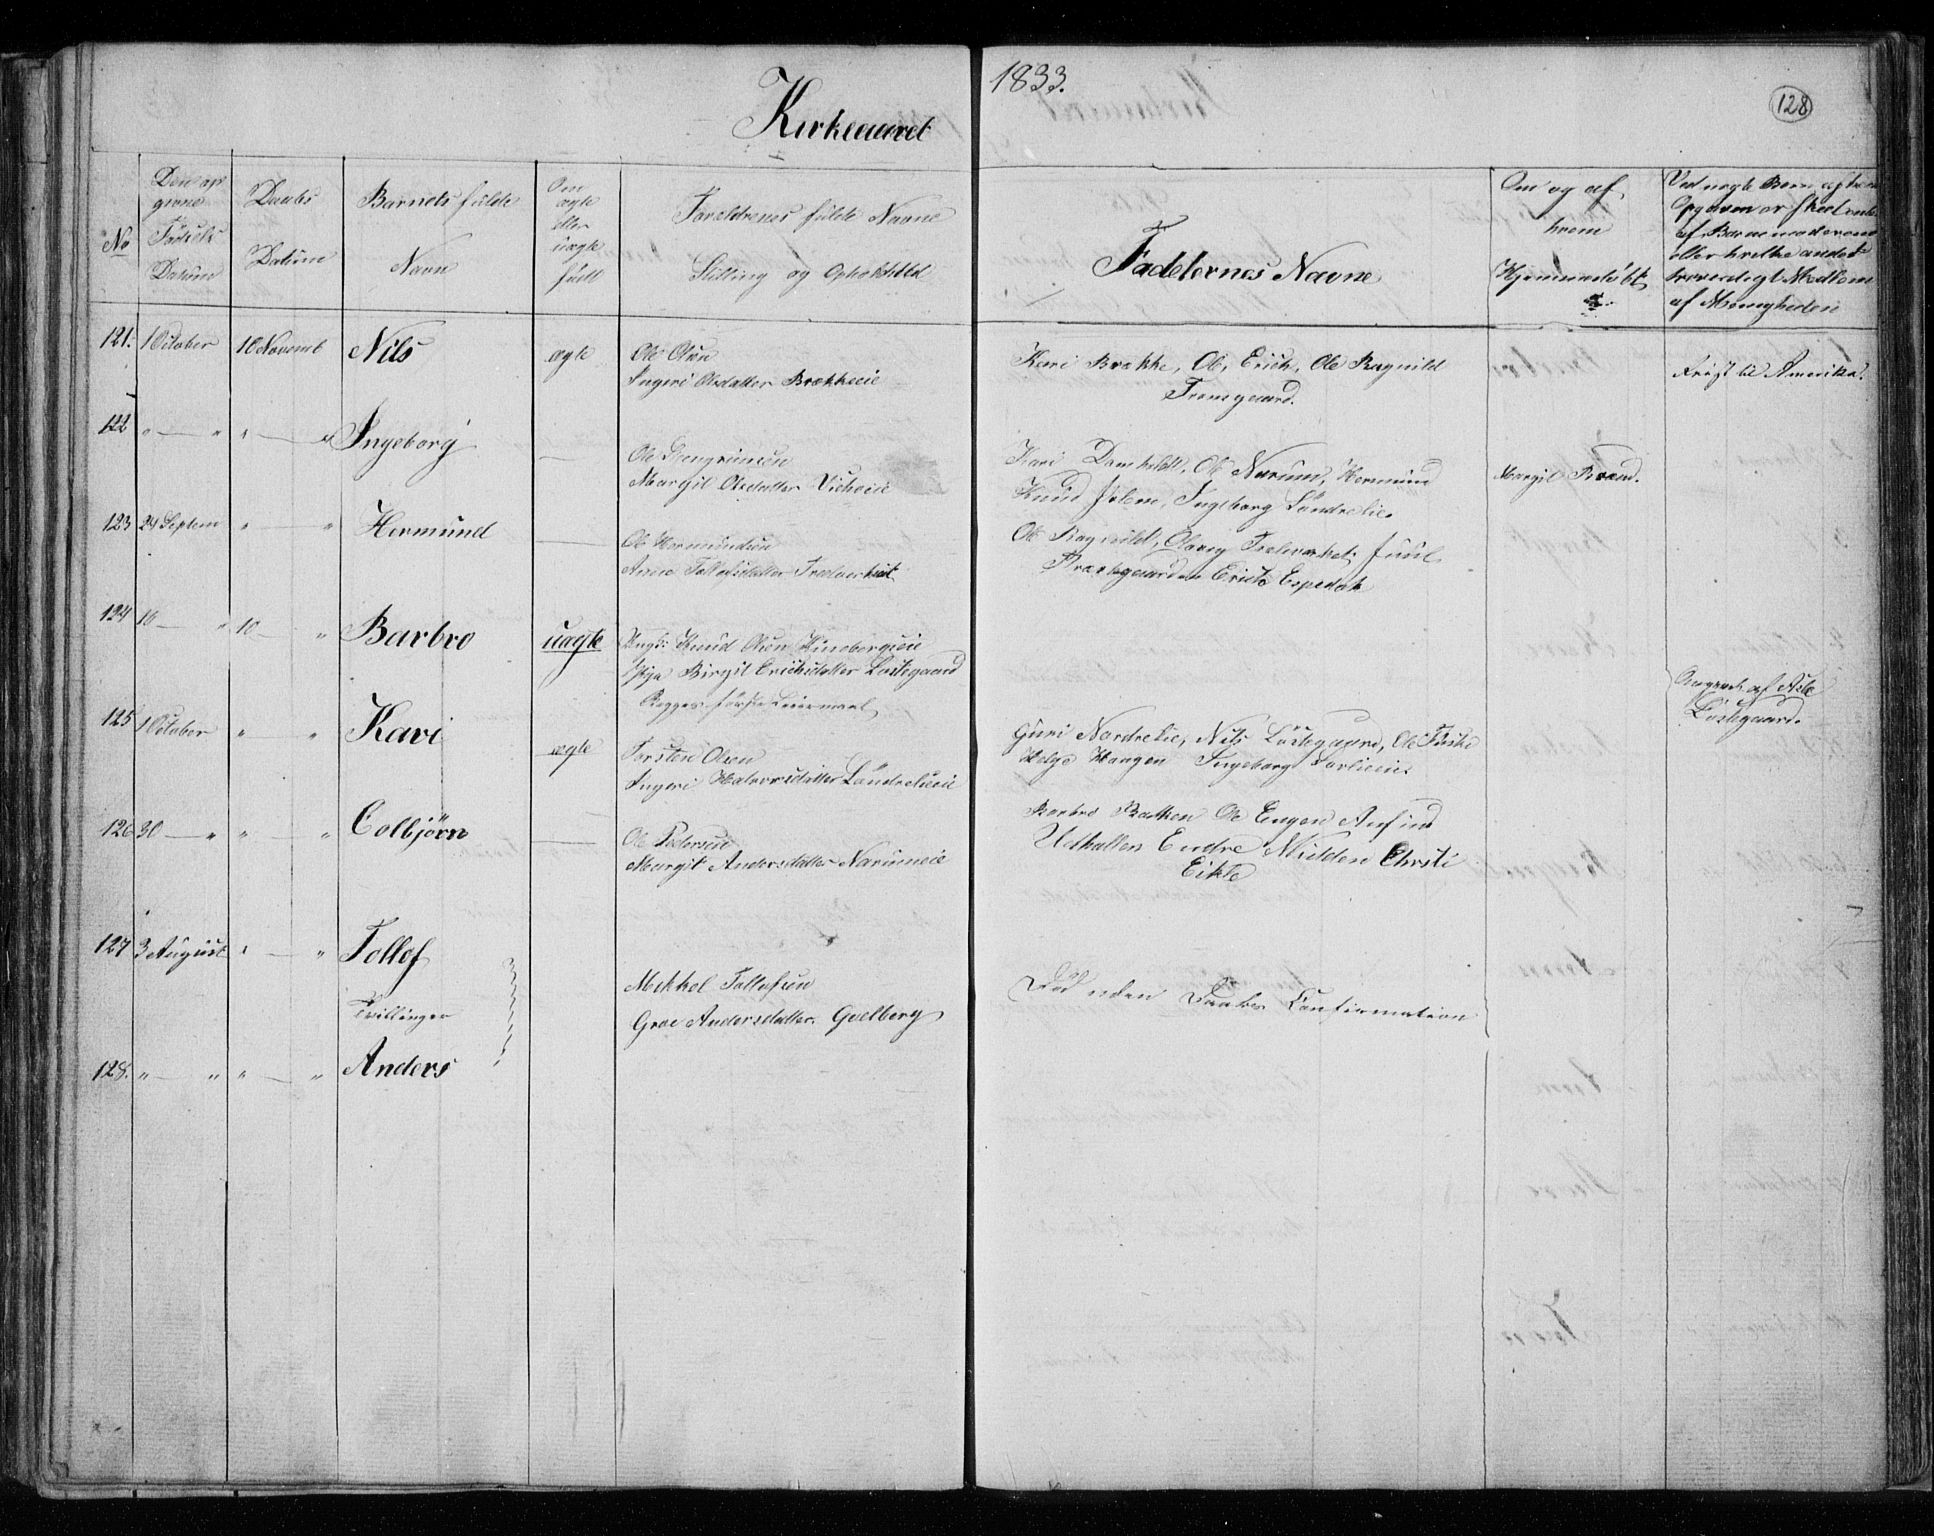 Kirkeaaret
1833.
128
No
Den op
givne
Födsels
Datum
Daabs
Datum
Barnets fulde
Navn
Om
ægte
eller
uægte
født
Foreldrenes fulde Navne
Stilling og Opholdsted
Faddernes Navne
Om og af
hvem
Hjemmedöbt
Ved uægte Børn
Opgaven er skeet enten
af Barnemoderen
eller hvilke andet
troværdigt Medlem
af Menigheden
121. 1 October 10 Novemb Nils ægte Ole Olsen
Ingeri Olsdatter Brækkeeie
Kari Brække, Ole, Erich, Ole Ragnild
Tromgaard.
Reist til Amerika.
122 " — " " — " Ingeborg —
Ole
Margit Olsdatter Vicheeie
Kari Ole Narum, Hermund
Knud Ingeborg Söndrelie.
Margit Roeen.
123 24 Septem " — " Hermund —
Ole Hermundsen
Anne Tollefsdatter
Ole Ragnild, Juul
Præstegaarden Espedok
124 16 — " 10 — " Barbro uægte Ungk: Knud Olsen
Pige Birgit Erichsdatter Löstegaard
Begges første Leiermaal
Angivet af Asle
Löstegaard.
125 1 October " — " Kari ægte Torsten Olsen
Ingeri Halvorsdatter Söndrelieeie
Guri Nordrelie, Nils Löstegaard, Ole
Helge Haugen Ingeborg
126 30 — " " — " Colbjörn —
Ole Pedersen
Margit Andersdatter Narumeie
Barbro Bratten Ole Engen Anfind
Endre Midden Christi
Eikle
127 3 August " — " Tollef
Tvillinger
Mikkel Tollefsen
Groe Andersdatter Gvelberg
Död uden Daabs Confirmation
128. " — " " — " Anders